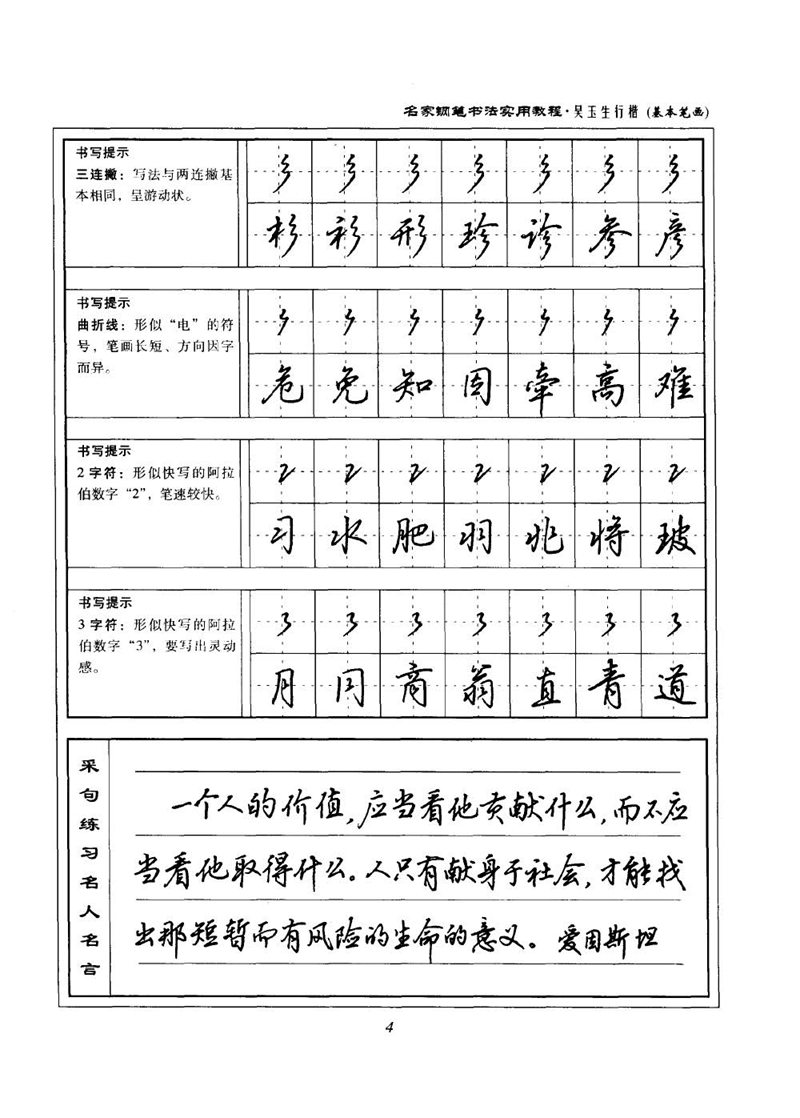 名家钢笔书法实用教程·吴玉生行楷(基本笔画)
书写提示
三连撇：写法与两连撇基
本相同，呈游动状。
彡 彡 彡 彡 彡 彡 彡
杉 衫 形 珍 诊 参 彦
书写提示
曲折线：形似“电”的符
号，笔画长短、方向因字
而异。
危 免 知 固 牵 高 难
书写提示
2字符：形似快写的阿拉
伯数字“2”，笔速较快。
2 2 2 2 2 2 2
习 水 肥 羽 兆 将 玻
书写提示
3字符：形似快写的阿拉
伯数字“3”，要写出灵动
感。
3 3 3 3 3 3 3
月 同 商 翁 直 青 道
采句练习名人名言
一个人的价值，应当看他贡献什么，而不应
当看他取得什么。人只有献身于社会，才能找
出那短暂而有风险的生命的意义。 爱因斯坦
4